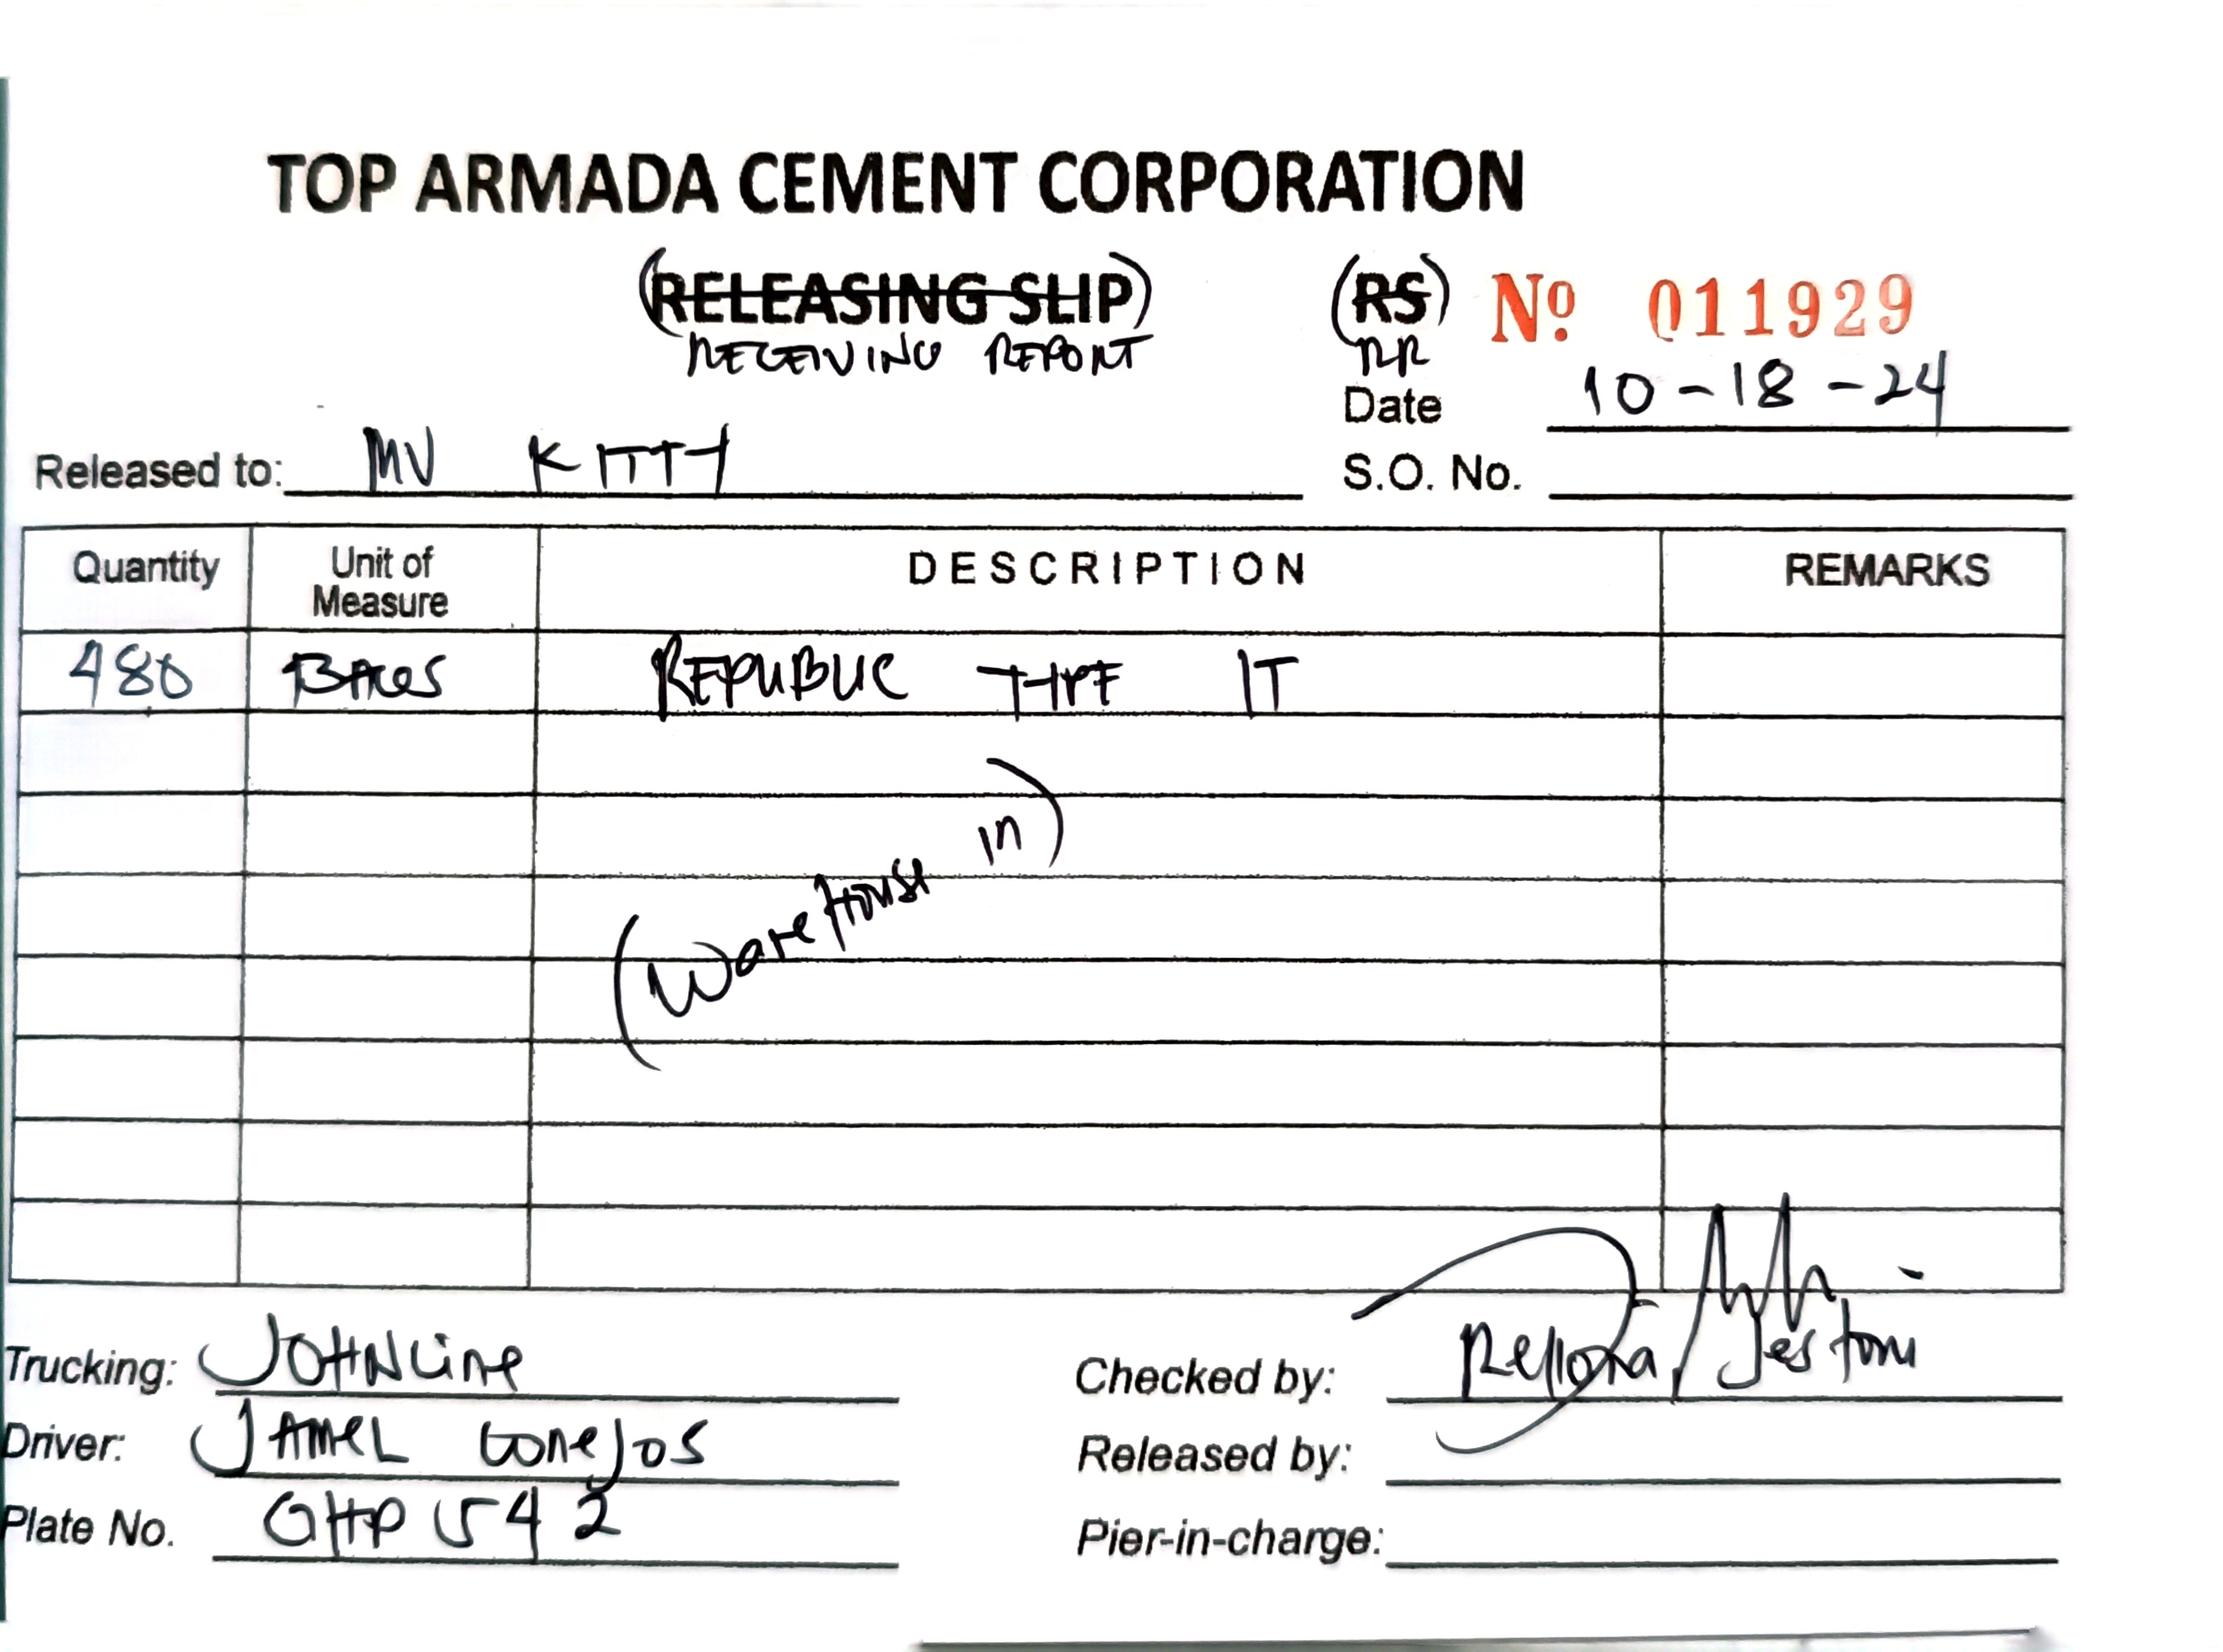 TOP ARMADA CEMENT CORPORATION
(RELEASING SLIP) (RS) Nº 011929
RECEIVING REPORT RR
Date 10-18-24
Released to: MV KITTY S.O. No.
Quantity Unit of Measure DESCRIPTION REMARKS
480 BAGS REPUBLIC TYPE IT
(Warehouse in)
Trucking: JOHNLINE Checked by: Rellona / Jestoni
Driver: JAMEL CONEJOS Released by:
Plate No. GHP 542 Pier-in-charge: